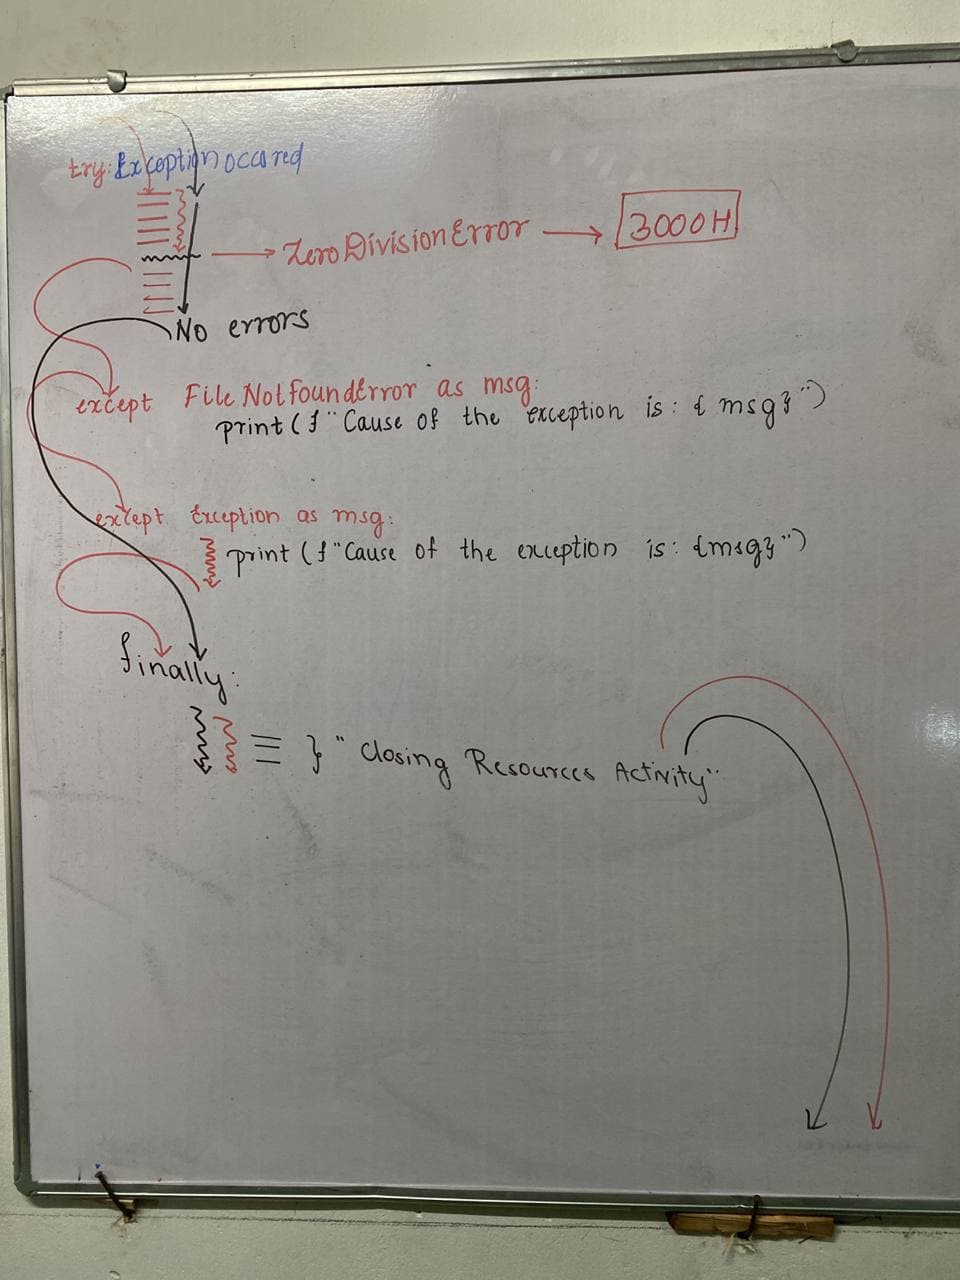 try: Exception occured
ZeroDivisionError 3000H
No errors
except FileNotFoundError as msg:
print(f"Cause of the exception is: {msg}")
except Exception as msg:
print(f"Cause of the exception is: {msg}")
finally:
} "Closing Resources Activity"